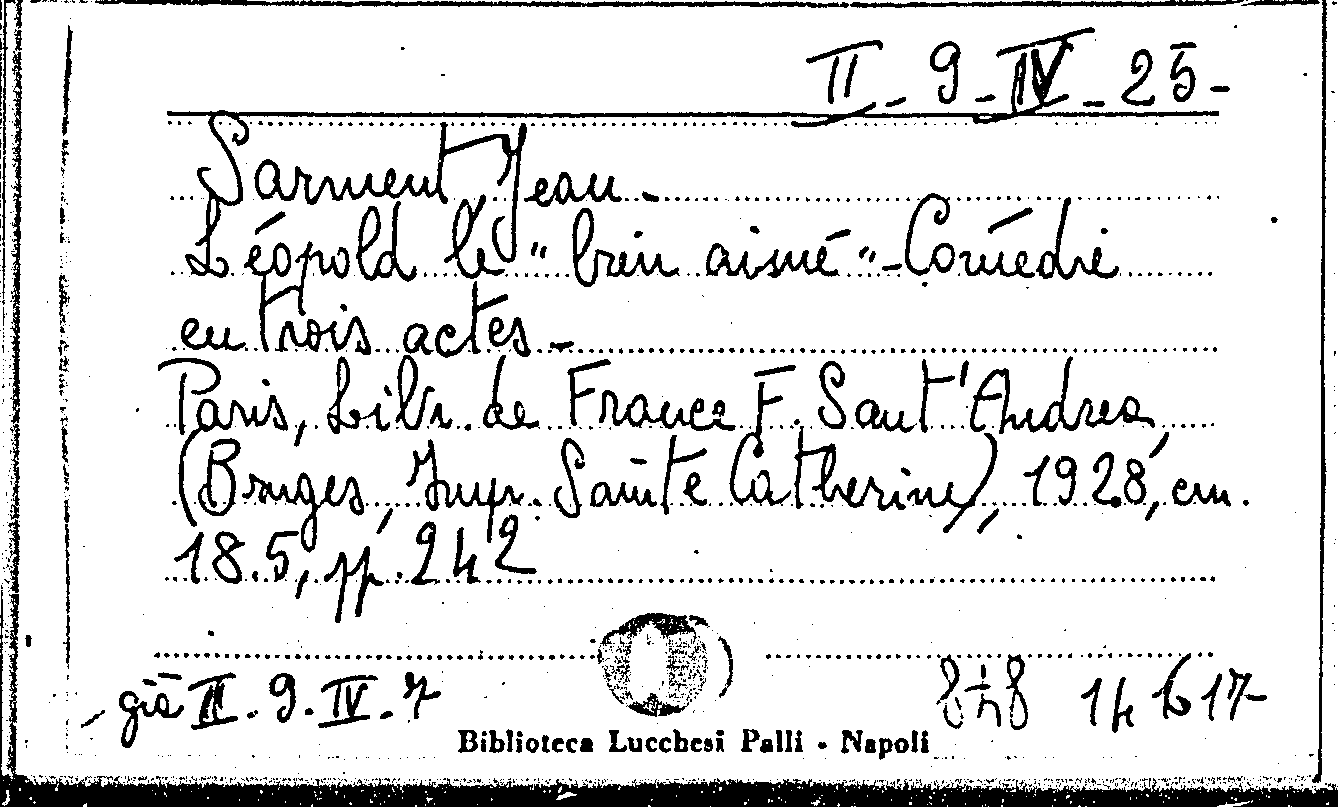 II - 9 - IV - 25 -
Sarment Jean -
Léopold le "bien aimé" - Comédie
en trois actes -
Paris, Libr. de France F. Sant'Andrea,
(Bruges, Impr. Sainte Catherine), 1928, cm.
18.5, pp. 242
già II. 9. IV. 7
14 1617
Biblioteca Lucchesi Palli - Napoli